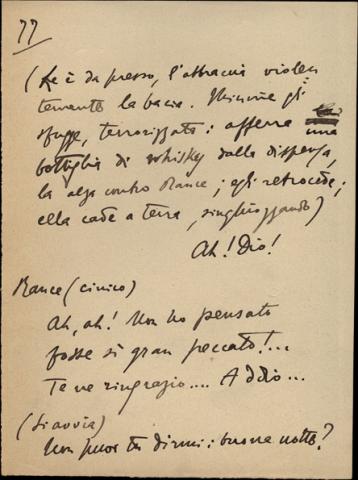 77
(Le è da presso, l'abbraccia violen
temente la bacia. Minnie gli
sfugge, terrorizzata: afferra una
bottiglia di whisky dalla dispensa,
la alza contro Rance; egli retrocede;
ella cade a terra, singhiozzando)
Ah! Dio!
Rance (cinico)
Ah, ah! Non ho pensato
fosse sì gran peccato!...
Te ne ringrazio.... Addio...
(Si avvia)
Non puoi tu dirmi: buona notte?